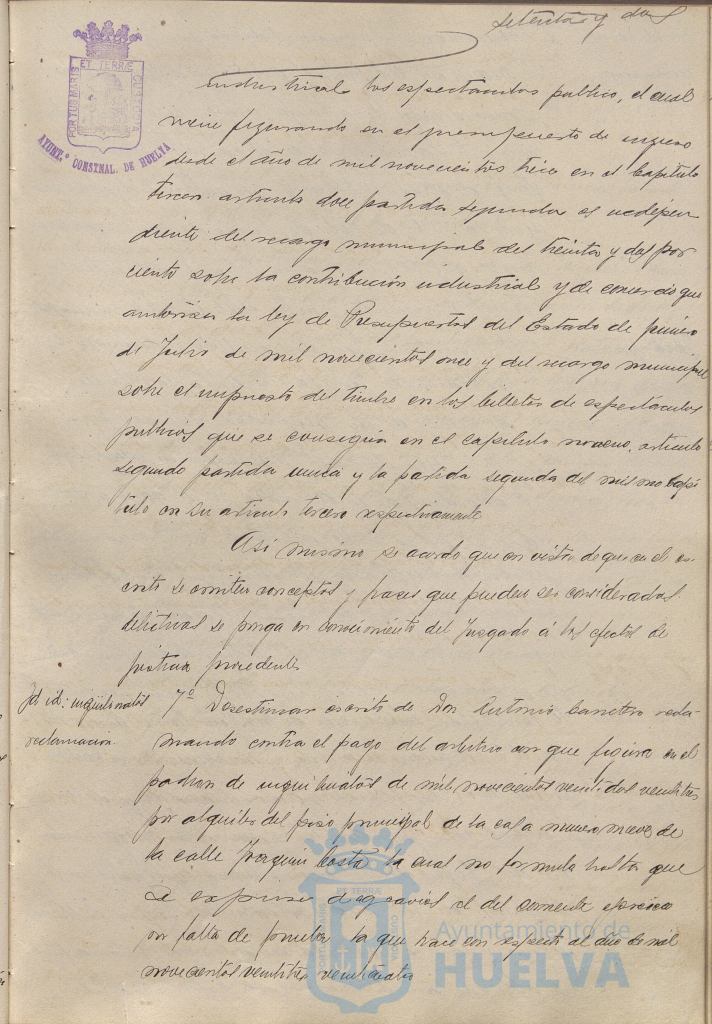 setenta y dos
PORTUS MARIS ET TERRÆ CUSTODIA
AYUNT.º CONSTNAL. DE HUELVA
industrial los espectaculos publico, el cual
viene figurando en el presupuesto de ingreso
desde el año de mil novecientos trece en el Capitulo
tercero articulo doce partida segunda es indepen
diente del recargo municipal del treinta y dos por
ciento sobre la contribución industrial y de comercio que
autoriza la ley de Presupuestos del Estado de primero
de Julio de mil novecientos once y del recargo municipal
sobre el impuesto del timbre en los billetes de espectaculos
publicos que se consigna en el capitulo noveno, articulo
segundo partida unica y la partida segunda del mismo capi
tulo en su articulo tercero respectivamente
Asi mismo se acordo que en vista de que en el es-
crito se emiten conceptos y frases que pueden ser considerados
delictivas se ponga en conocimiento del Juzgado á los efectos de
justicia procedentes
Id id: inquilinatos
reclamacion.
7º Desestimar escrito de Don Antonio recla-
mando contra el pago del arbitrio con que figura en el
padron de inquilinatos de mil novecientos veintidos veintitres
por alquiler del piso principal de la casa numero nueve de
la calle Joaquin Costa la cual no formula hasta que
se expuso de agravios el del corriente ejercicio
por falta de prueba la que hace con respecto al de mil
novecientos veintitres veinticuatro
Ayuntamiento de
HUELVA